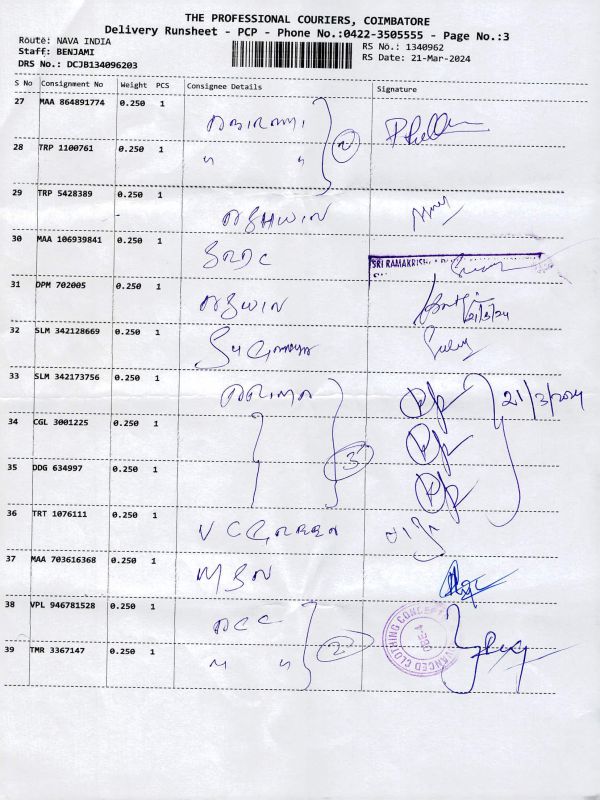 THE PROFESSIONAL COURIERS, COIMBATORE
Delivery Runsheet - PCP - Phone No.:0422-3505555 - Page No.:3
Route: NAVA INDIA
RS No: 1340962
Staff: BENJAMI
RS Date: 21-Mar-2024
DRS No.: DCJB134096203
S No Consignment No Weight PCS Consignee Details Signature
27 MAA 864891774 0.250 1
ABIRAMI
28 TRP 1100761 0.250 1
" "
2
29 TRP 5428389 0.250 1
ASHWIN
30 MAA 106939841 0.250 1
SRDC
SRI RAMAKRISH
31 DPM 702005 0.250 1
ASWIN
21/3/24
32 SLM 342128669 0.250 1
33 SLM 342173756 0.250 1
21/3/2024
34 CGL 3001225 0.250 1
35 DDG 634997 0.250 1
3
36 TRT 1076111 0.250 1
V C GREEN
37 MAA 703616368 0.250 1
MSN
38 VPL 946781528 0.250 1
ACC
ADVANCED CLOTHING CONCEPT
39 TMR 3367147 0.250 1
" "
2